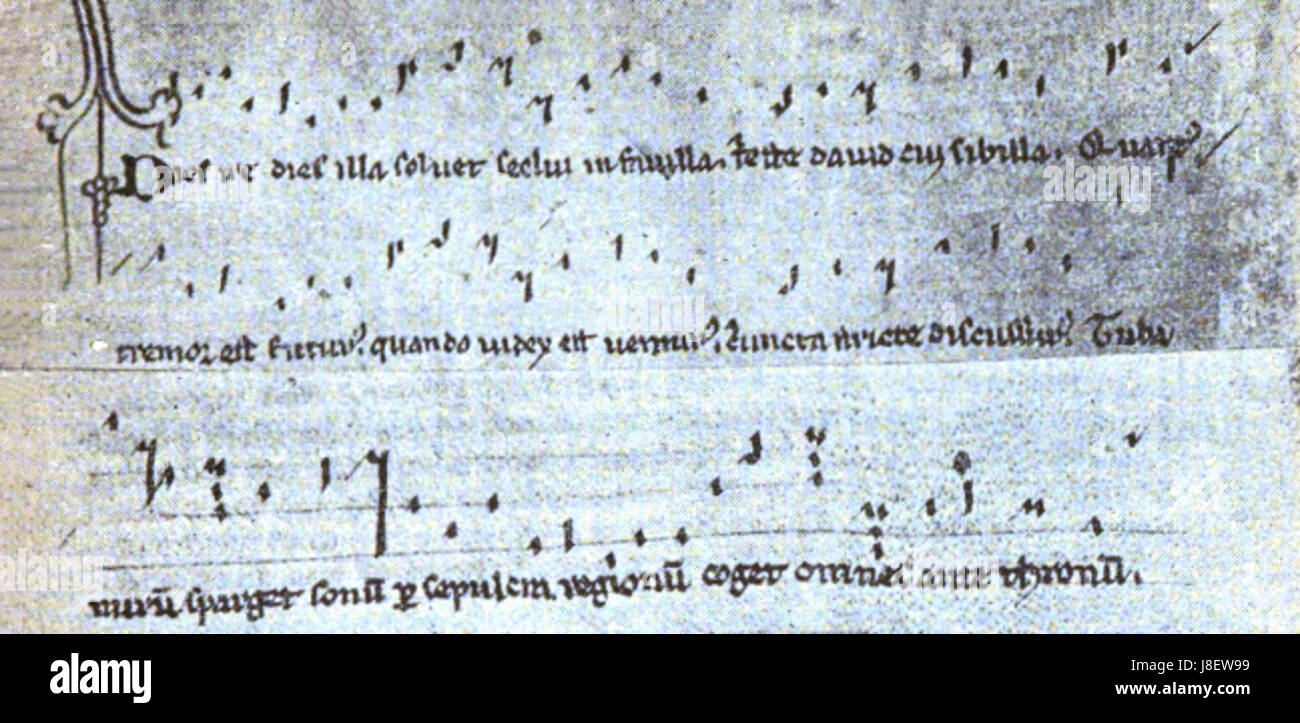 Dies ire dies illa soluet seclu in fauilla. teste dauid cu sibilla. Quat9
tremor est futur9. quando uidex est uentur9. Cuncta stricte discussur9. Tuba
mirū sparget sonū p sepulcra regionū coget omnes ante thronū.
alamy
Image ID: J8EW99
www.alamy.com